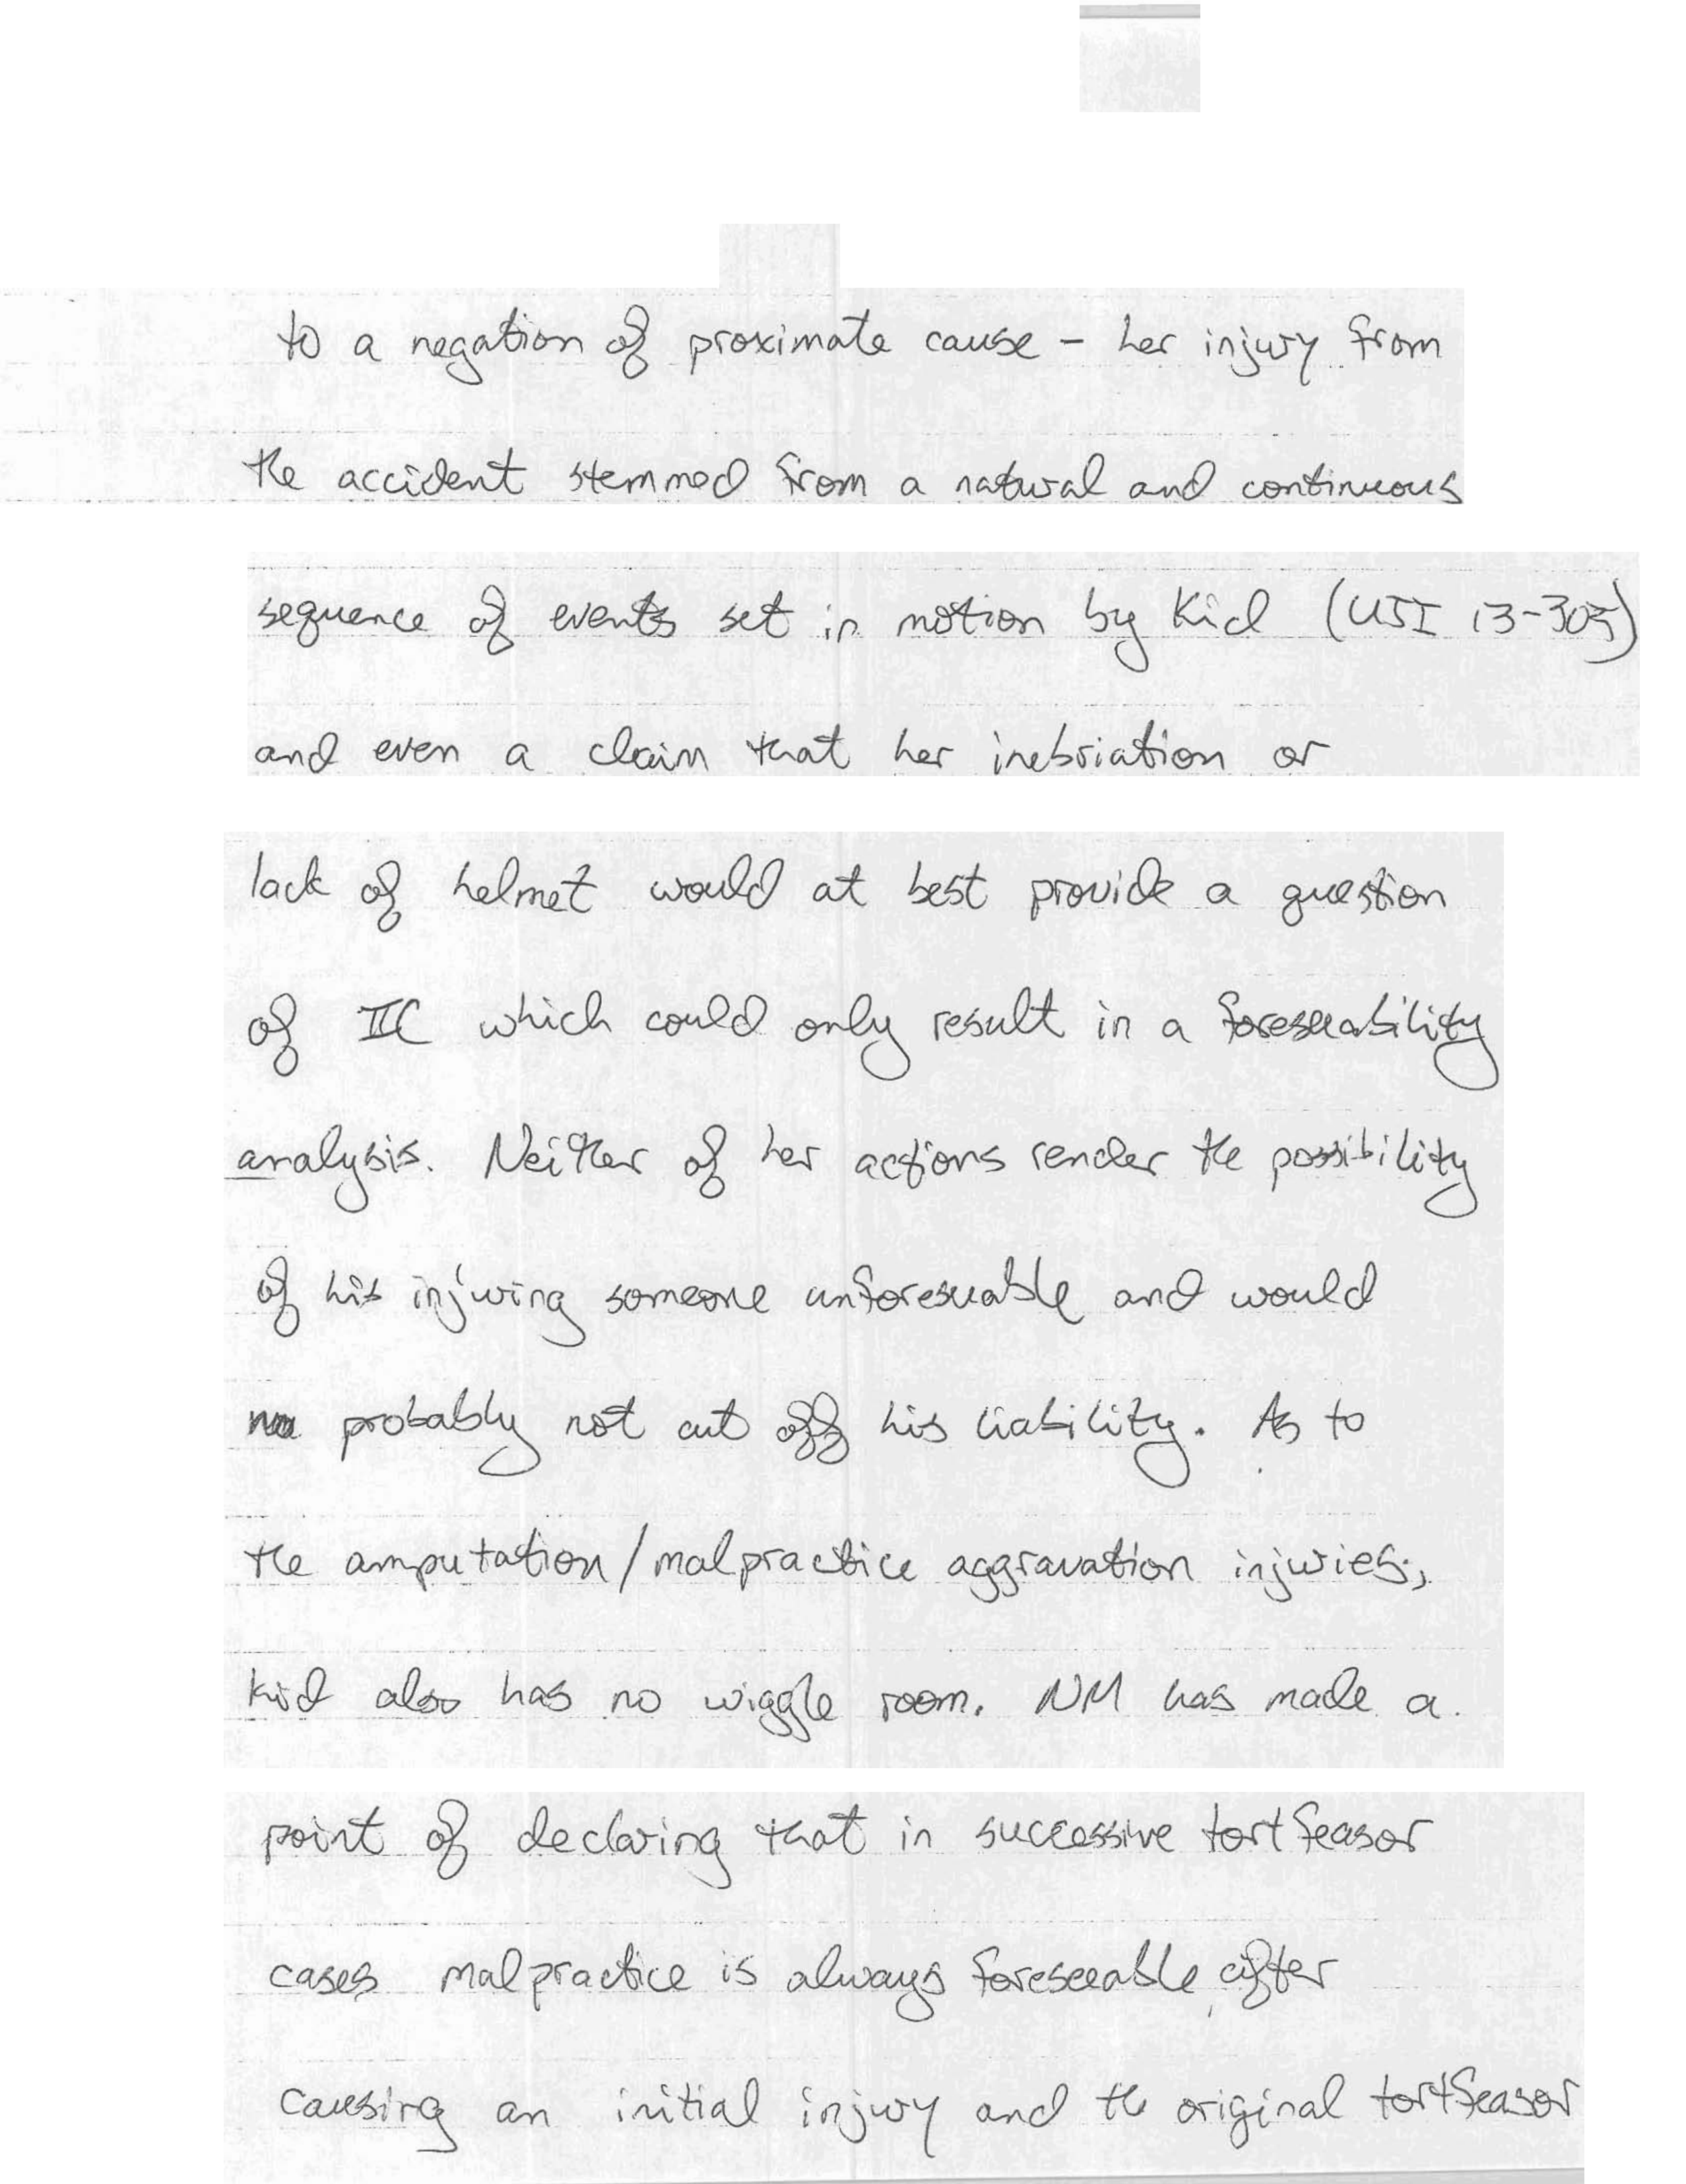 to a negation of proximate cause - her injury from
the accident stemmed from a natural and continuous
sequence of events set in motion by Kid (UJI 13-305)
and even a claim that her inebriation or
lack of helmet would at best provide a question
of IIC which could only result in a foreseeability
analysis. Neither of her actions render the possibility
of his injuring someone unforeseeable and would
probably not cut off his liability. As to
the amputation/malpractice aggravation injuries,
kid also has no wiggle room. NM has made a
point of declaring that in successive tortfeasor
cases malpractice is always foreseeable after
causing an initial injury and the original tortfeasor